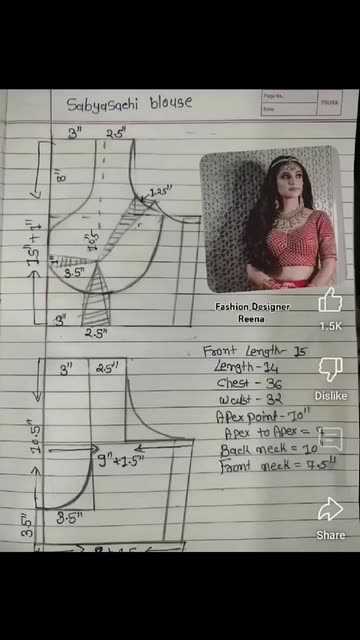 Page No.:
Date:
YOUVA
Sabyasachi blouse
3" 2.5"
8"
1.25"
15"+1"
10.5"
1"
3.5"
3"
2.5"
Fashion Designer
Reena
1.5K
Dislike
Share
Front Length - 15
Length - 14
Chest - 36
Waist - 32
Apex point - 10"
Apex to Apex = 7
Back neck = 10"
Front neck = 7.5"
3" 2.5"
10.5"
9"+1.5"
3.5"
3.5"